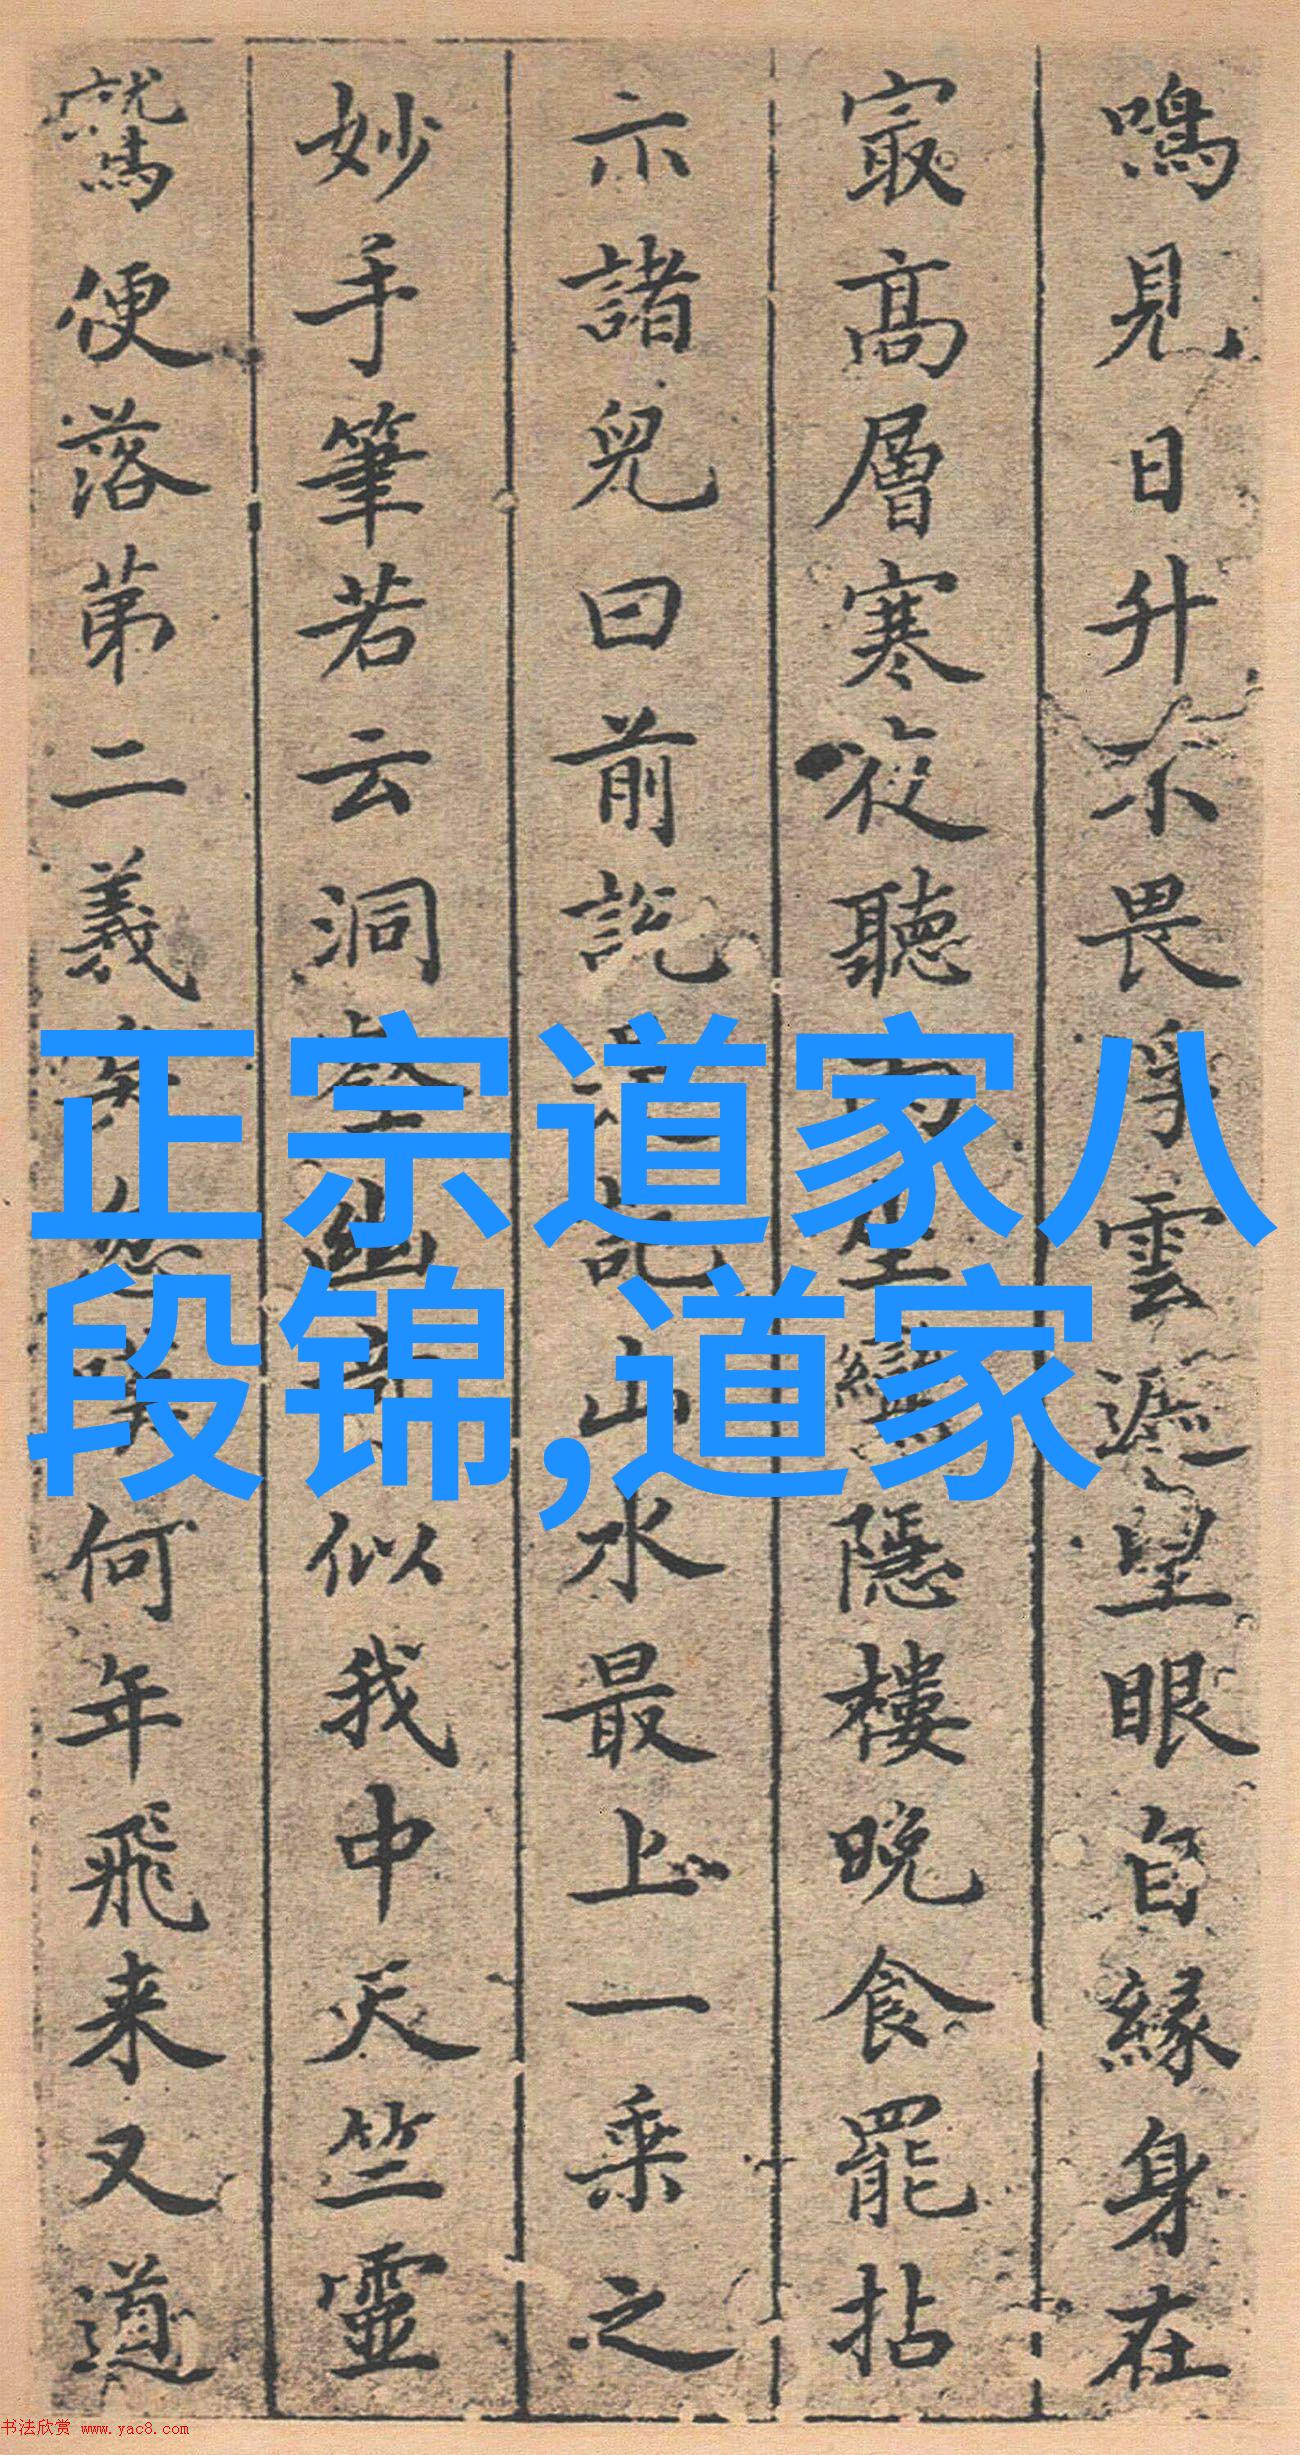 鳴見日升不畏浮雲遮望眼自緣身在
㝡高層寒夜聽雨坐隱樓晚食罷拈
示諸兒曰前説記山水最上一乘之
妙手筆若云洞壑幽奇似我中天竺靈
鷲便落第二義矣何年飛来又道
正宗道家八
段锦,道家
书法欣赏 www.yac8.com